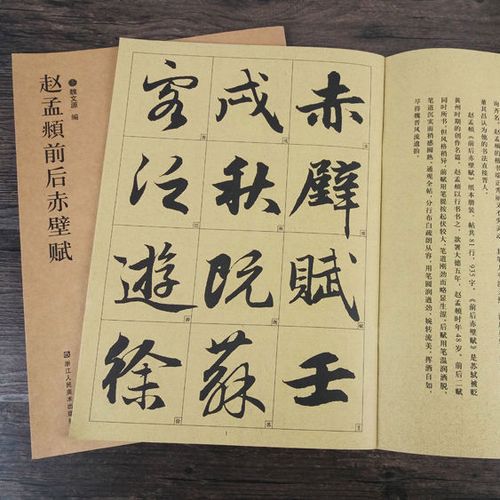 赵孟頫前后赤壁赋
魏文源 编
浙江人民美术出版
赤壁賦壬
戌秋既蘇
客泛遊徐
1
董其昌认为他的书法直接晋人。
赵孟頫《前后赤壁赋》纸本册装，帖共81行，935字。《前后赤壁赋》是苏轼被贬
黄州时期的创作名篇，赵孟頫以行书书之，款署大德五年，赵孟頫时年48岁。前后二赋
同时所书，但风格稍异，前赋用笔提按起伏较大，笔道刚劲而略显生涩，后赋用笔温润洒脱，
笔道沉实而精感圆熟。通观全帖，分行布白疏朗从容，用笔圆润遒劲，婉转流美，挥洒自如，
尽得魏晋风流遗韵。